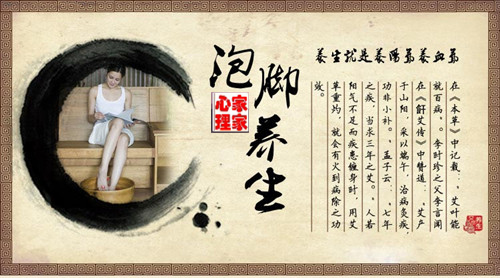 泡脚养生
家家
心理
养生就是养阳气养血气
在《本草》中记载:,艾叶能
就百病。。李时珍之父李言闻
在《蕲艾传》中赞道:,艾产
于山阳,采以端午,治病灸疾,
功非小补。,孟子云:,七年
之疾,当求三年之艾。,人若
阳气不足而疾患缠身时,用艾
草重灼,就会有火到病除之功
效。